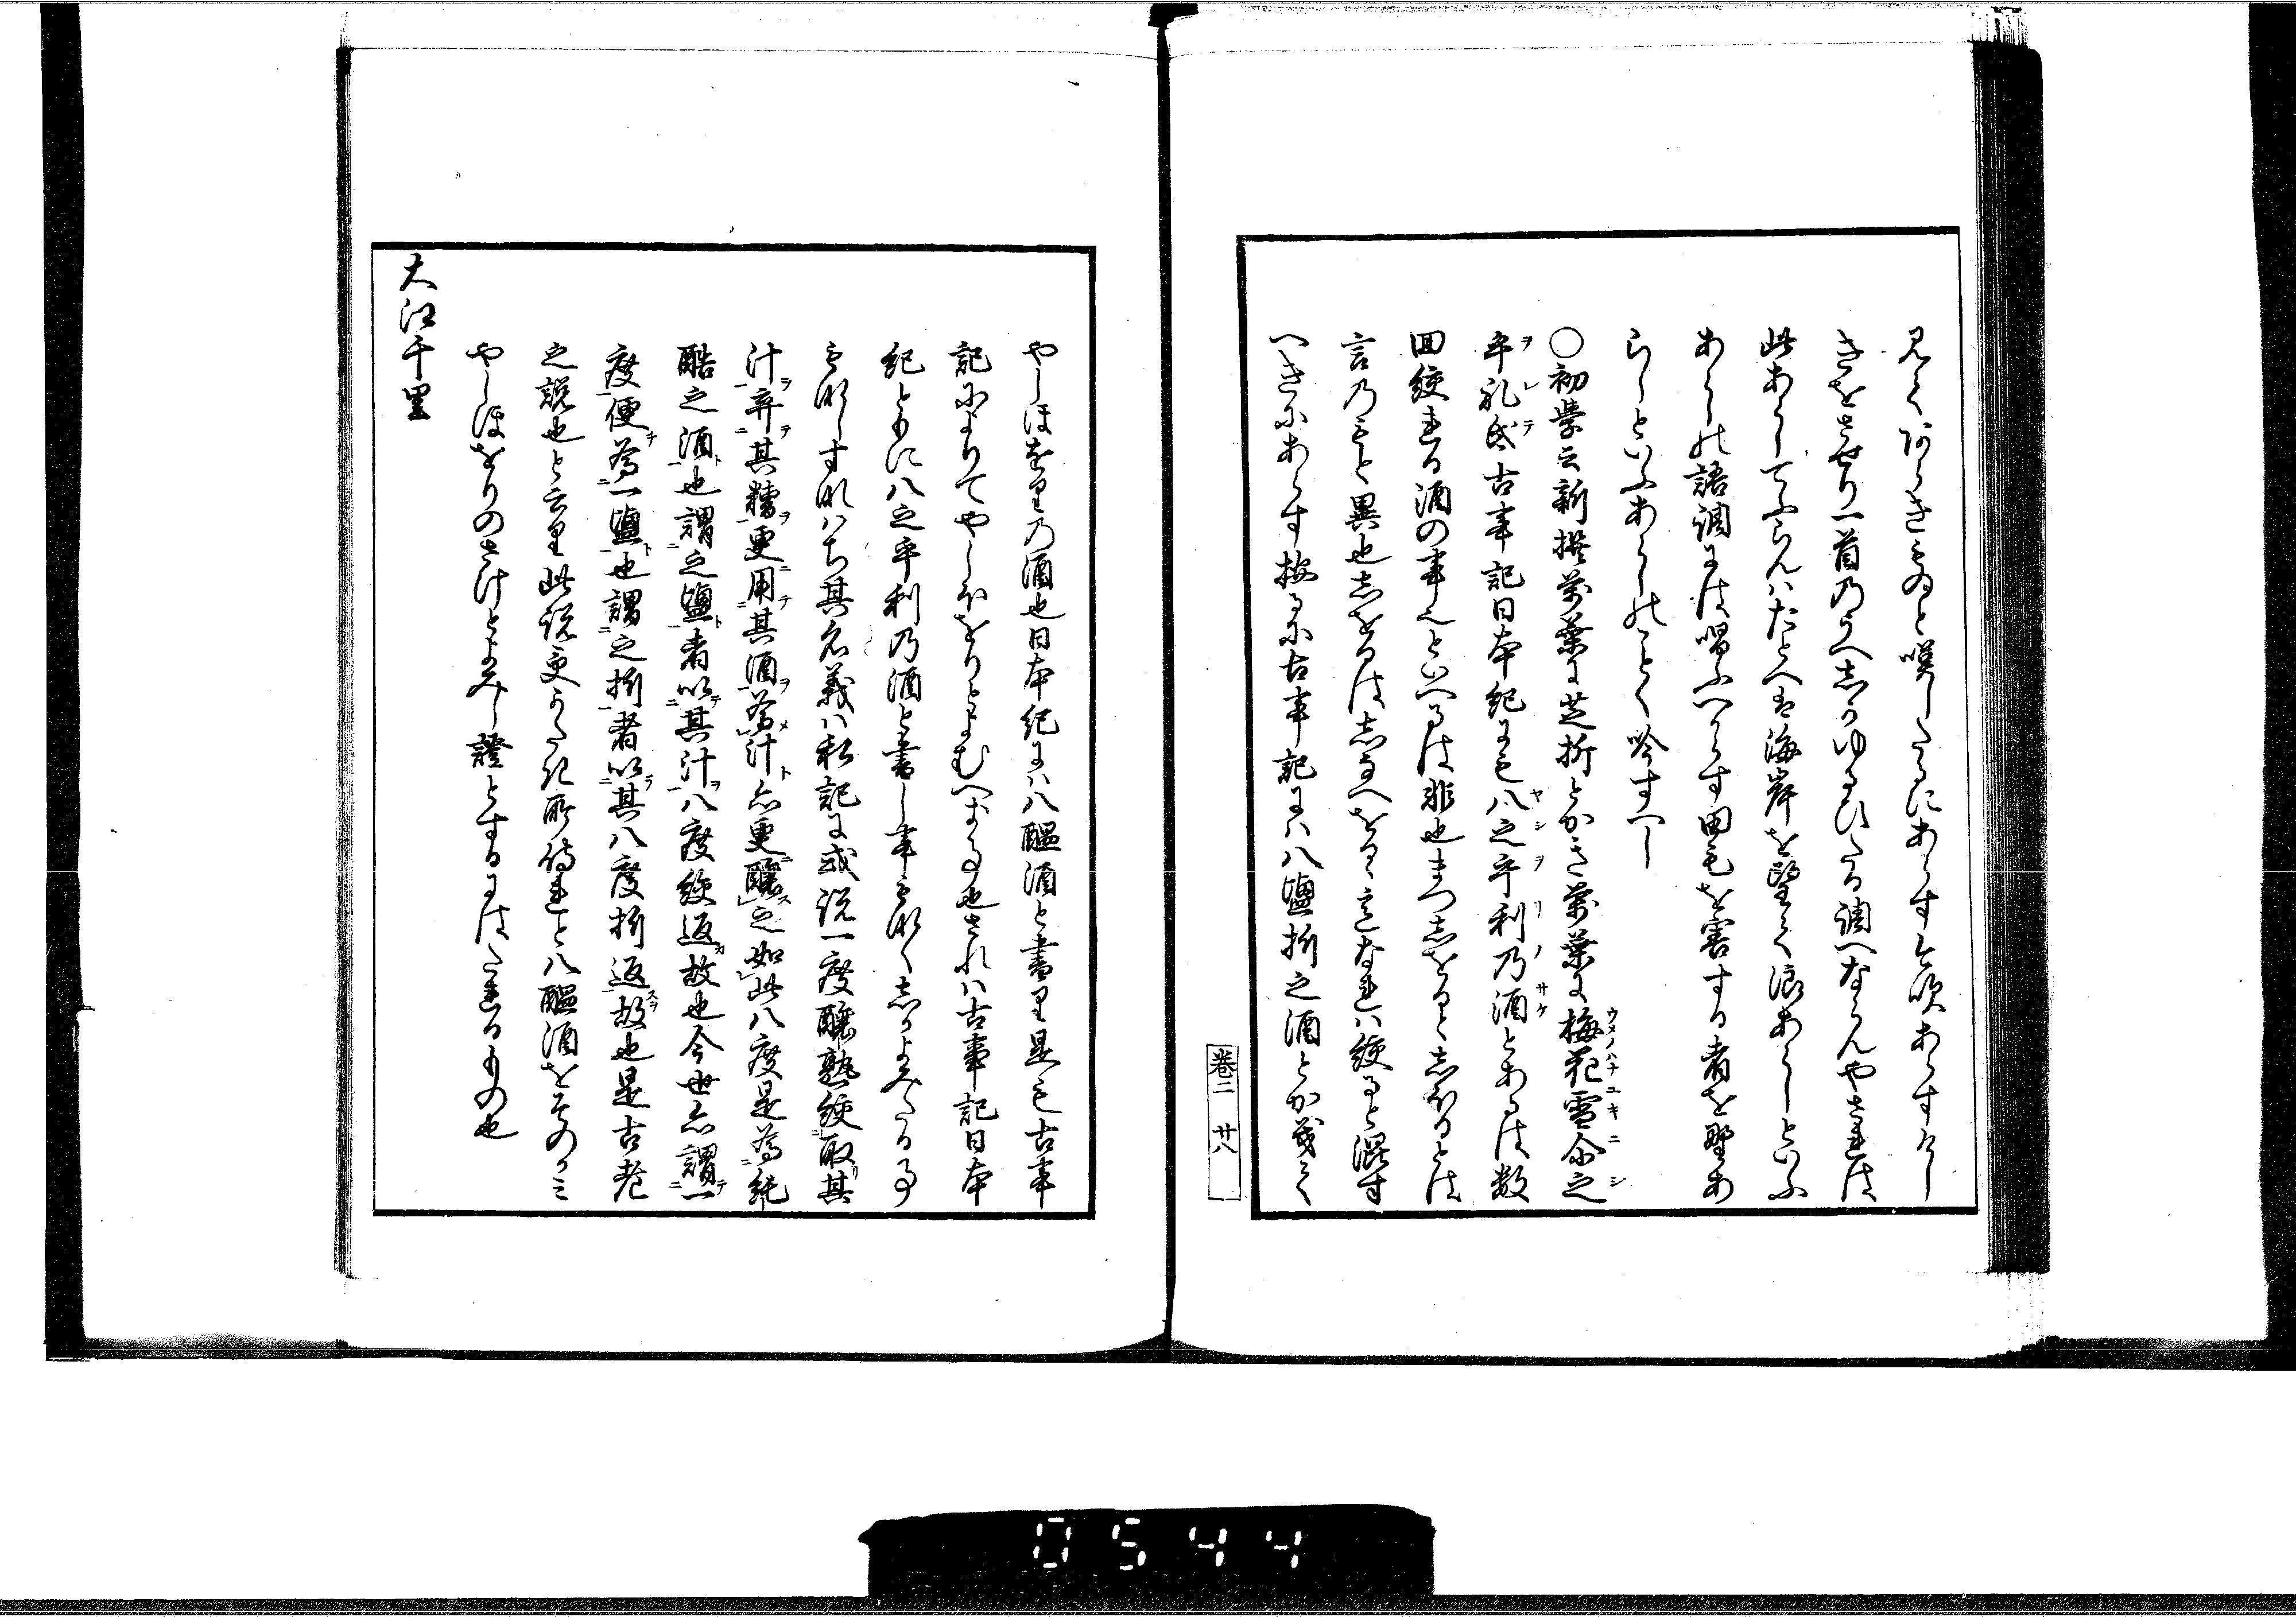 きをとせり一首乃うへしかゆるひたる調へならんやされは
此あらしてふらんハたとへは海岸を望て浪あらしといふ
あらしの語調には唱ふへからす田毛を害する者を野あ
らしといふあらしのことく吟すへし
○初学云新撰万葉に芝折とかき万葉に梅花雪尓之
乎礼氐古事記日本紀にも八之乎利乃酒とあるは数
回絞れる酒の事也といへるは非也まつしをるとしほるとは
言乃もと異也しをるはしなへをるゝ意なれハ絞ると混す
へきにあらす按るに古事記にハ八塩折之酒とか茂く
巻二 廿八
やしほをり乃酒也日本紀にハ八醞酒と書り是も古事
記によりてやしほをりとよむへき事也されハ古事記日本
紀ともに八之乎利乃酒と書し事もなくしかよみたる事
もなしすなハち其名義ハ私記に或説一度醸熟絞取其
汁弃其糟更用其酒為汁亦更醸之如此八度是為純
酷之酒也謂之塩者以其汁八度絞返故也今世亦謂一
度便為一塩也謂之折者以其八度折返故也是古老
之説也と云り此説更うたか所侍れと八醞酒をそのかミ
やしほをりのさけとよみし證とするにはたれるもの也
大江千里
0544